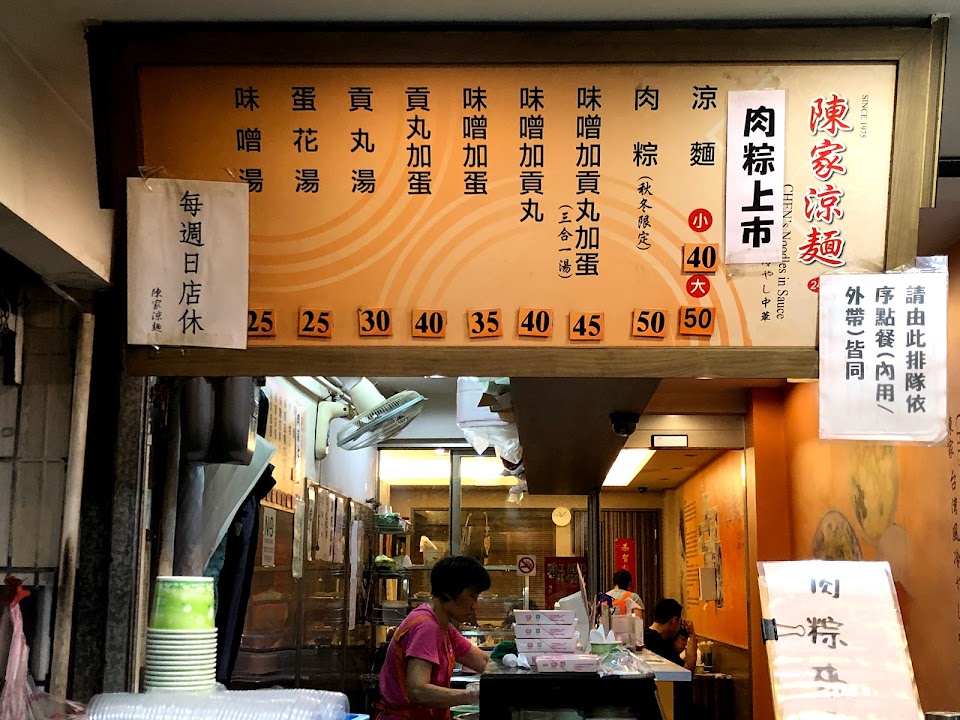 陳家涼麵
SINCE 1975
CHEN's Noodles in Sauce
やし中華
肉粽上市
涼麵
小
40
大
50
肉粽(秋冬限定)
50
味噌加貢丸加蛋
(三合一湯)
45
味噌加貢丸
40
味噌加蛋
35
貢丸加蛋
40
貢丸湯
30
蛋花湯
25
味噌湯
25
每週日店休
陳家涼麵
請由此排隊依
序點餐(內用/
外帶)皆同
肉粽
台灣風